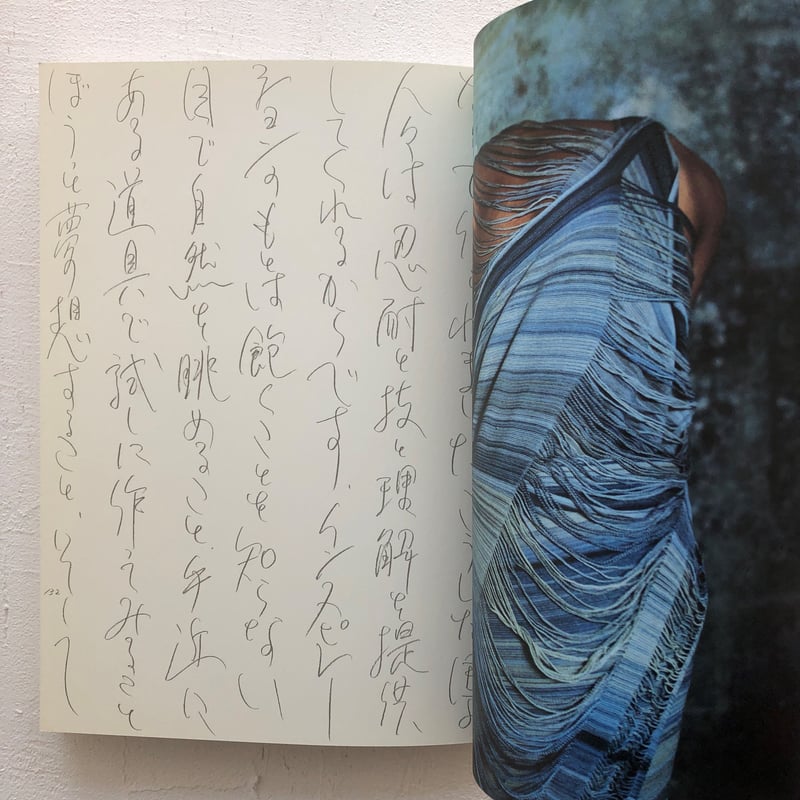 れました。こうした
人々は忍耐と技と理解を提供
してくれるからです。インスピレー
ションのもとは飽くことを知らない
目で自然を眺めること、手近に
ある道具で試しに作ってみること
ぼうっと夢想すること、そして
132